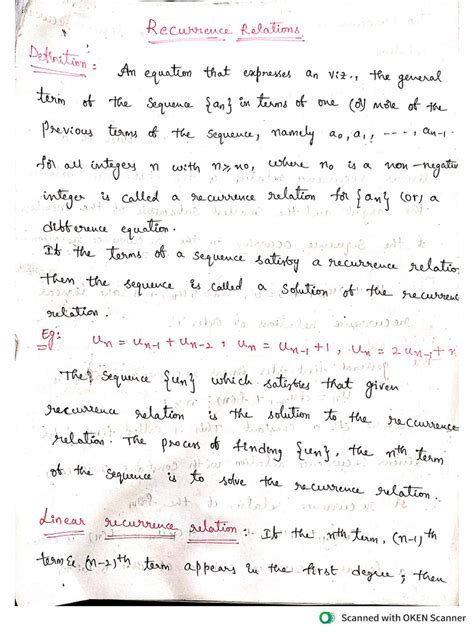 Recurrence Relations
Definition: An equation that expresses an viz., the general
term of the sequence {an} in terms of one (or) more of the
Previous terms of the sequence, namely a0, a1, ----, an-1.
for all integers n with n≥n0, where n0 is a non-negativ
integer is called a recurrence relation for {an} (or) a
difference equation.
If the terms of a sequence satisfy a recurrence relatio
then the sequence is called a solution of the recurrenc
relation.
Eg: un = un-1 + un-2, un = un-1 + 1, un = 2un-1 + n
The sequence {un} which satisfies that given
recurrence relation is the solution to the recurrence
relation. The process of finding {un}, the nth term
of the sequence is to solve the recurrence relation.
Linear recurrence relation: If the nth term, (n-1)th
term & (n-2)th term appears in the first degree, then
Scanned with OKEN Scanner